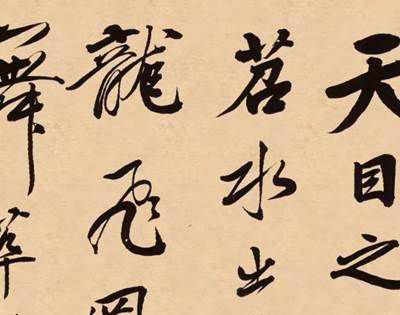 天目之
苕水出
龍飛鳳
舞萃